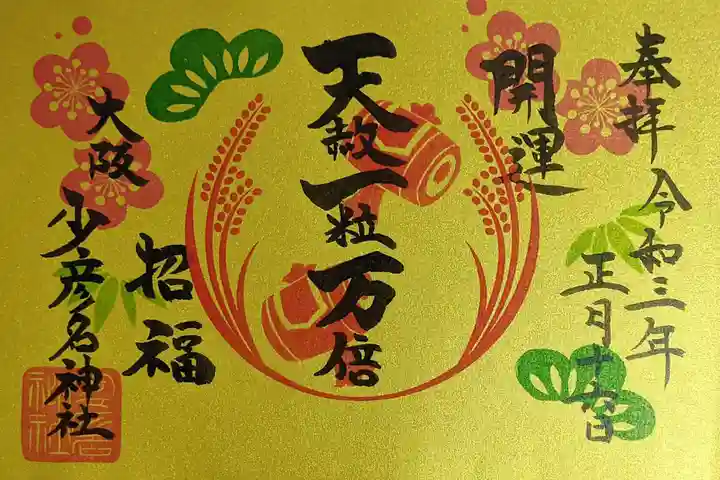 奉拝 令和三年
正月十六日
開運
天赦一粒万倍
招福
大阪
少彦名神社